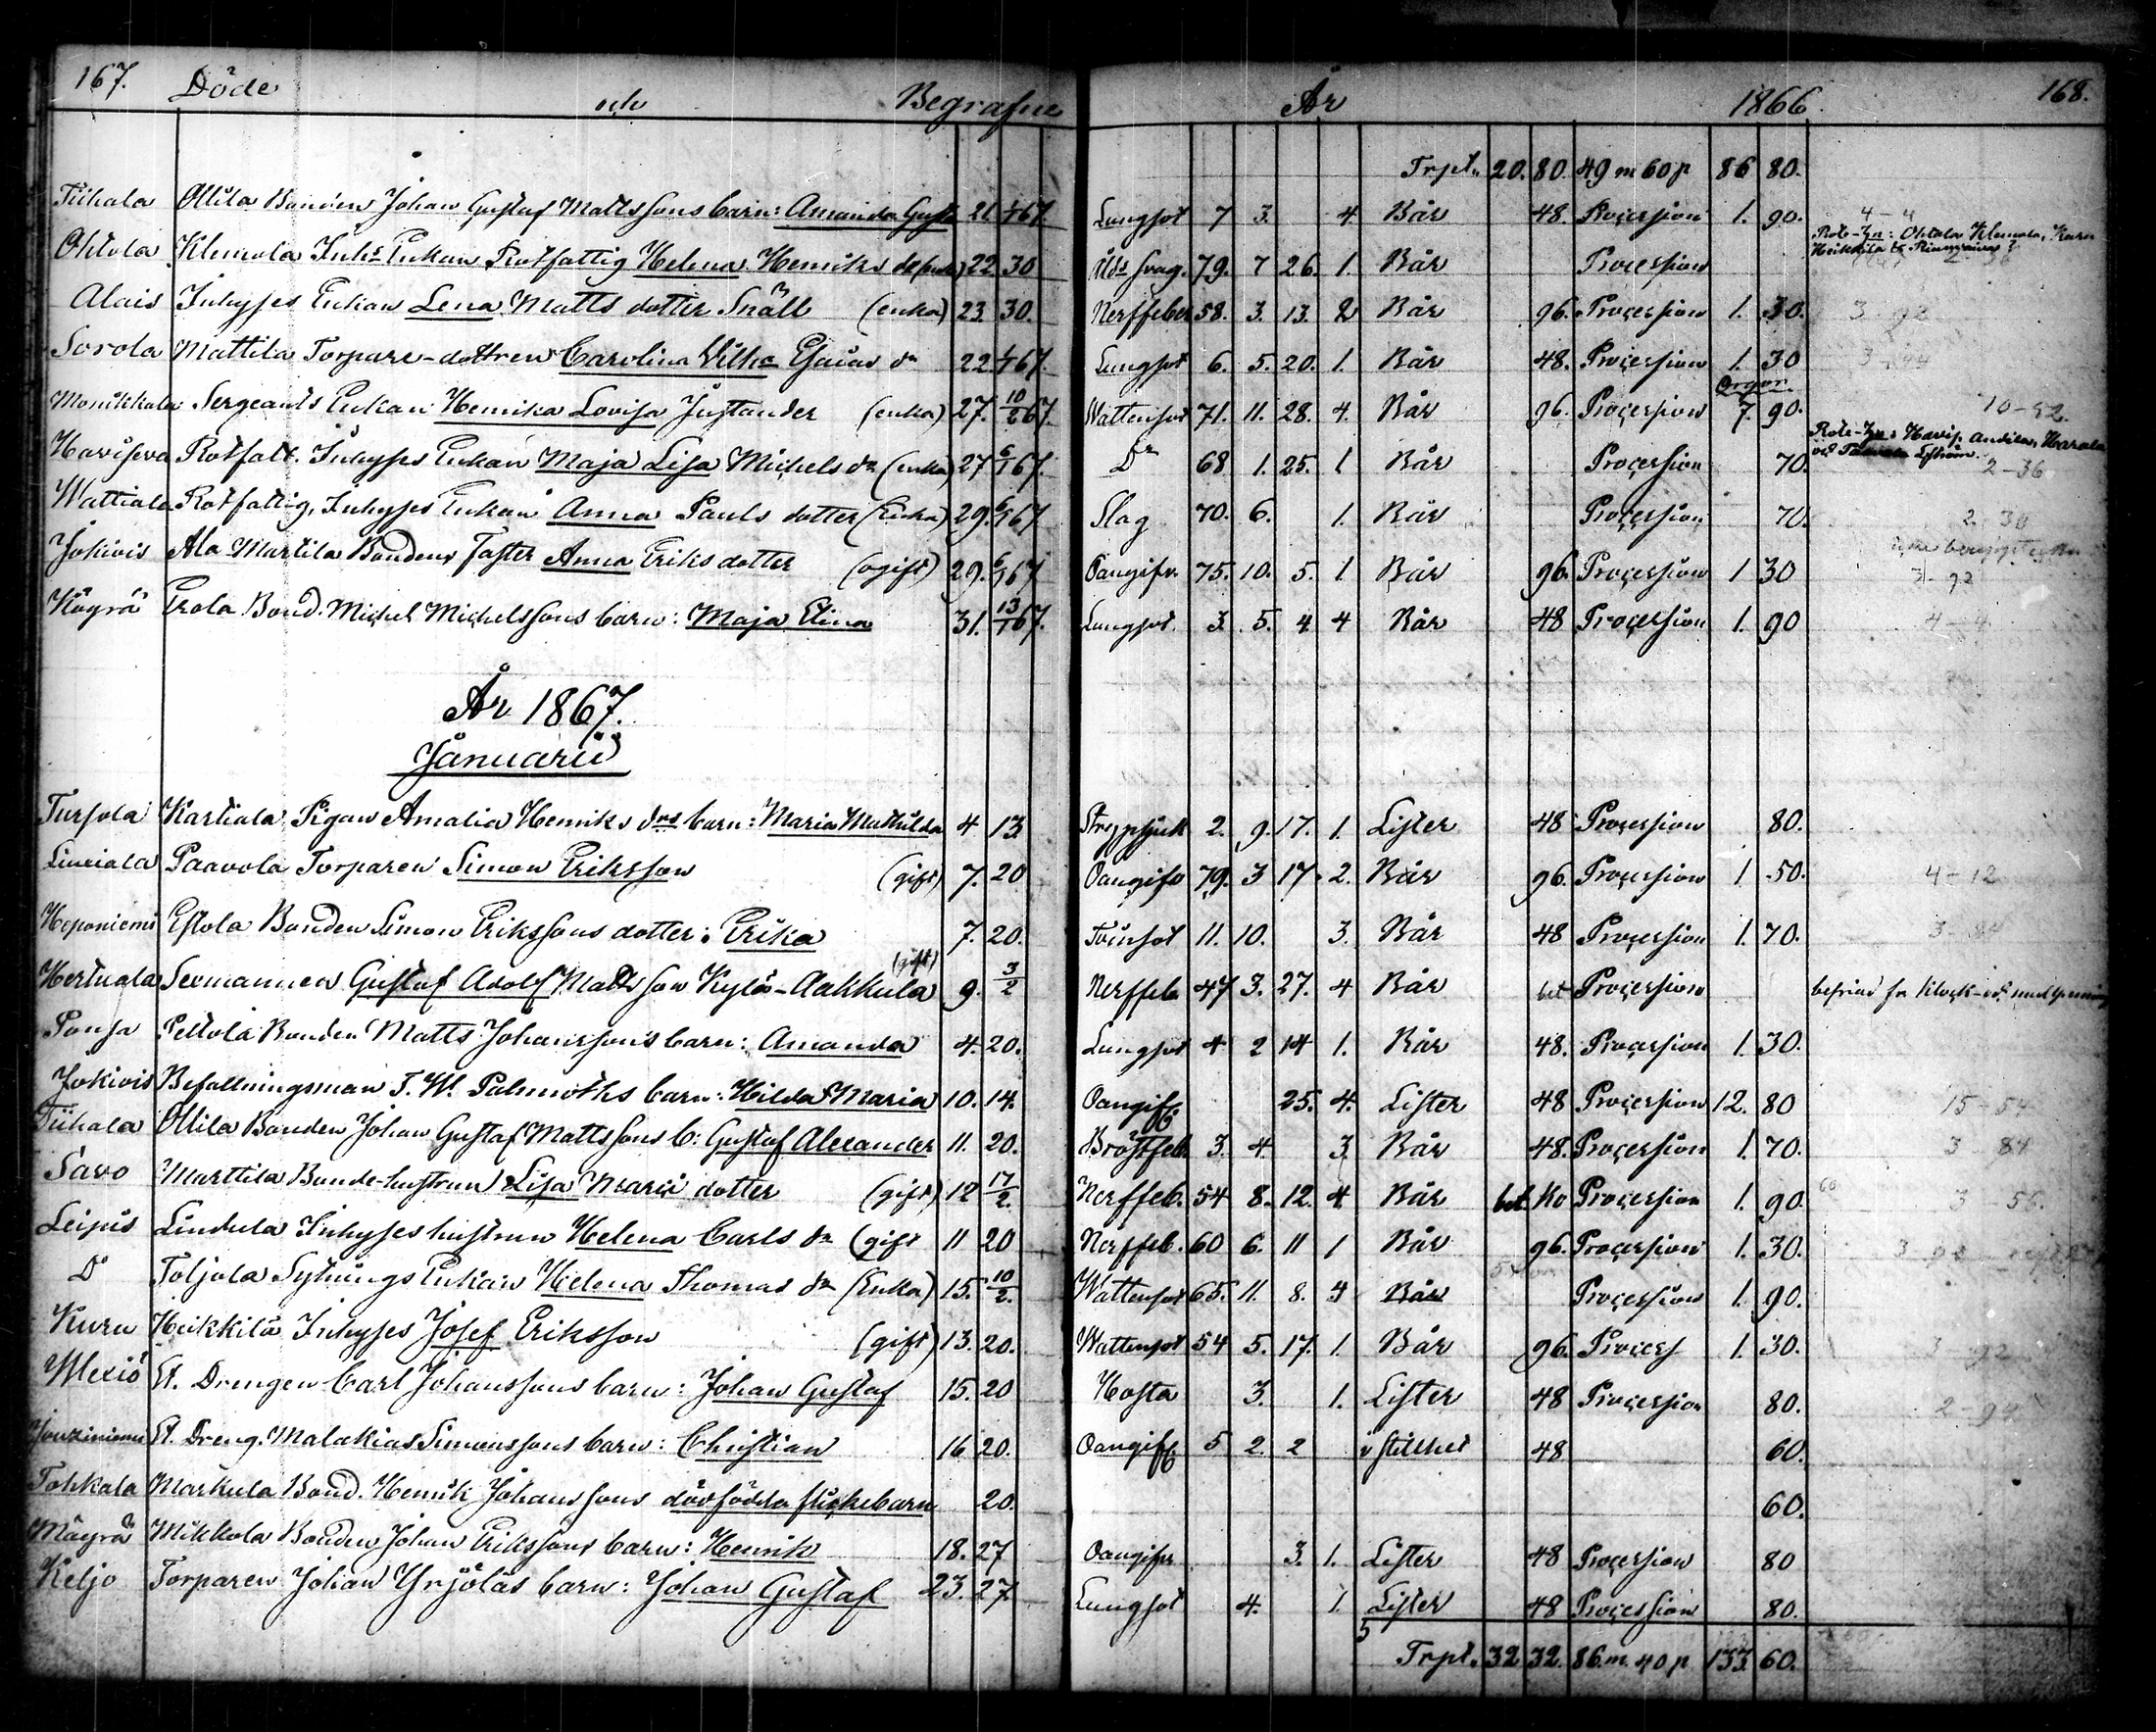 167. Döde och Begrafne År 1866. 168.
Trpt. 20. 80. 49 m 60 p 86 80.
Tiihala Ollila Bonden Johan Gustaf Mattssons barn: Amanda Gust 21. 6/1 67. Lungsot 7 3. 4. Bår 48. Procession 1. 90. 4-4
Ohtola Klemola Enkan Rotfattig Helena Henriks d. 22. 30 Åld: svag. 79. 7 26. 1. Bår Procession Rote-hjon: Ohtola Klemola, Kuru
Heikkila
Alais Inhyses Enkan Lena Matts dotter Snäll (enka) 23. 30. Nerffeber 58. 3. 13. 2 Bår 96. Procession 1. 30. 3-92
Sorola Mattila Torpare-dottren Carolina Vilhe Esaias dr 22. 6/1 67. Lungsot 6. 5. 20. 1. Bår 48. Procession 1. 30 3-44
Monikkala Sergeants Enkan Henrika Lovisa Justander (enka) 27. 10/2 67. Wattensot 71. 11. 28. 4. Bår 96. Procession 7. 90. 10-52
Orgor.
Harviseva Rotfatt. Inhyses Enkan Maja Lisa Michels dr (enka) 27 6/1 67. Do 68 1. 25. 1 Bår Procession 70. 2-36
Wattiala Rotfattig, Inhyses Enkan Anna Pauls dotter (Enka) 29. 6/1 67 Slag 70. 6. 1. Bår Procession 70. 2-30
Jokiois Ala Martila Bondens faster Anna Eriks dotter (ogift) 29. 6/1 67 Oangifv. 75. 10. 5. 1 Bår 96. Procession 1 30 3-92
Kägrä Erola Bond. Michel Michelssons barn: Maja Elina 31. 13/1 67. Lungsot. 3. 5. 4. 4 Bår 48 Procession 1. 90 4-4
År 1867.
Januarii
Tursola Kartiala Pigan Amalia Henriks drs barn: Maria Mathilda 4 13 Strypsjuk 2. 9. 17. 1. Lister 48 Procession 80.
Liuxiala Paavola Torparen Simon Eriksson (gift) 7. 20 Oangifv 79. 3 17. 2. Bår 96. Procession 1. 50. 4-12
Heponiemi Eskola Bonden Simon Erikssons dotter: Erika 7. 20. Tvinsot 11. 10. 3. Bår 48 Procession 1. 70. 3-84
Hertuala Seemannen Gustaf Adolf Mattsson Kylä-Aakkula (gift) 9. 3/2 Nerffeb. 47 3. 27. 4 Bår bet Procession befriad fr. klock-
Ponsa Peltola Bonden Matts Johanssons barn: Amanda 4. 20. Lungsot 4 2 14 1. Bår 48. Procession 1. 30.
Jokiois Befallningsman T. W. Palmroths barn: Hilda Maria 10. 14. Oangift 25. 4. Lister 48 Procession 12. 80 15-54
Tiihala Ollila Bonden Johan Gustaf Mattssons b: Gustaf Alexander 11. 20. Bröstfeb. 3. 4. 3. Bår 48. Procession 1. 70. 3-84
Savo Marttila Bonde-hustrun Lisa Maria dotter (gift) 12 17/2. Nerffeb. 54 8. 12. 4 Bår bet. Ko Procession 1. 90. 3 56.
Leipis Lindula Inhyses hustrun Helena Carls dr (gift 11 20 Nerffeb. 60 6. 11 1 Bår 96. Procession 1. 30.
Do Toljola Sytnings Enkan Helena Thomas dr (Enka) 15. 10/2. Wattensot 65. 11. 8. 4 Bår Procession 1. 90.
Kuru Heikkilä Inhyses Josef Eriksson (gift) 13. 20. Wattensot 54 5. 17. 1. Bår 96. Process 1. 30. 3-92
St. Drengen Carl Johanssons barn: Johan Gustaf 15. 20 Hosta 3. 1. Lister 48 Procession 80.
St. Dreng. Malakias Simonssons barn: Christian 16 20. Oangift 5 2. 2 i stillhet 48 60.
Tohkala Markula Bond. Henrik Johanssons dödfödda flickebarn 20. 60.
Mäyrä Mikkola Bonden Johan Erikssons barn: Henrik 18. 27 Oangifv 3. 1. Lister 48 Procession 80
Keljo Torparen Johan Yrjöläs barn: Johan Gustaf 23. 27 Lungsot 4. 1. Lister 48 Procession 80.
Trpt. 32 32. 86. m. 40 p 133. 60.